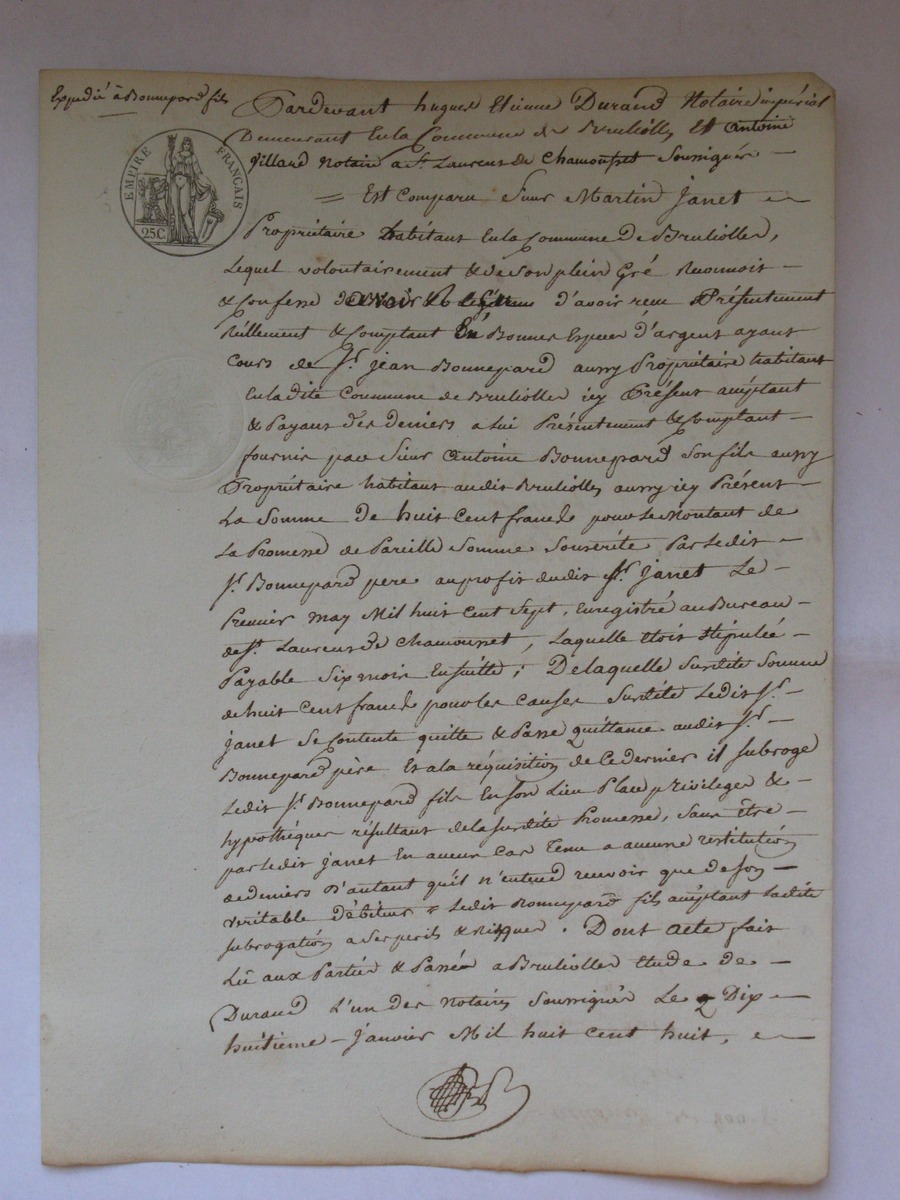 Expedié à Bonnepard fils
Pardevant hugues Etienne Durand Notaire impérial
Demeurant En la Commune de Brullioles Et Antoine
Villard Notaire a St. Laurent de Chamousset Soussignés —
EMPIRE FRANÇAIS
25C.
= Est Comparu Sieur Martin Janet
Propriétaire habitant En la Commune De Brulliolles,
Lequel volontairement & de Son plein Gré Reconnoit —
& Confesse d'avoir reçu Présentement
Réellement & Comptant En Bonnes Especes D'argent ayant
Cours de Sr. Jean Bonnepard aussy Propriétaire habitant
En la dite Commune de Brulliolles icy Présent acceptant
& Payant des deniers a lui Présentement & Comptant —
fournis par Sieur Antoine Bonnepard Son fils aussy
Propriétaire habitant audit Brulliolles aussy icy Présent —
La Somme De huit Cent francs pour le Montant de
La Promesse de Pareille Somme Souscrite Par ledit —
Sr. Bonnepard pere au profit dudit Sr. Janet Le —
Premier may Mil huit Cent Sept, Enregistré au Bureau —
de St. Laurent de Chamousset, Laquelle étoit Stipulée —
Payable Six mois Ensuitte; De laquelle Susdite Somme
de huit Cent francs pour les Causes Susdite Ledit Sr. —
Janet Se Contente quitte & Passe quittance audit Sr. —
Bonnepard père Et a la réquisition de Ce dernier il Subroge
Ledit Sr. Bonnepard fils En Son Lieu Place privileges & —
hypothéques résultant de la Susdite Promesse, Sans être —
par ledit Janet En aucun Cas Tenu a aucune restitution
de deniers D'autant qu'il n'entend recevoir que de Son —
veritable débiteur = Ledit Bonnepard fils acceptant Ladite
Subrogation a Ses perils & Risques. Dont acte fait
Lû aux Parties & Passé a Brulliolles Etude de —
Durand L'un des Notaires Soussignés Le Dix —
huitieme — Janvier Mil huit Cent huit,